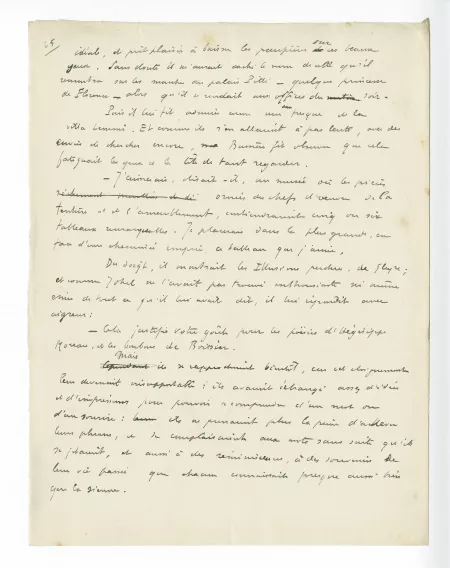 idéal, et prit plaisir à baisser les paupières sur ses beaux
yeux. Sans doute il m'aurait caché le nom de celle qu'il
rencontra sur les marches du palais Pitti – quelque princesse
de Florence – alors qu'il se rendait aux offices du matin soir.
Puis il lui fit admirer une fresque de la
villa Lemmi. Et comme ils s'en allaient à pas lents, avec des
envies de chercher encore, Barrès fit observer que cela
fatiguait les yeux et la tête de tant regarder.
– J'aimerais, disait-il, un musée où les pièces
ornées de chefs d'œuvre de la
tenture et de l'ameublement, contiendraient cinq ou six
tableaux remarquables. Je placerais dans la plus grande, en
face d'une cheminée empire, ce tableau que j'aime,
Du doigt, il montrait les Illusions perdues, de Gleyre;
et comme Jokel ne l'avait pas trouvé enthousiaste ni même
ému de tout ce qu'il lui avait dit, il lui répondit avec
aigreur:
– Cela justifie votre goût pour les poésies d'Hégésippe
Moreau, et les bonbons de Boissier.
Mais
Cependant ils se rapprochaient bientôt, car cet éloignement
leur devenait insupportable: ils avaient échangé assez d'idées
et d'impressions pour pouvoir se comprendre d'un mot ou
d'un sourire: ils ne prenaient plus la peine d'achever
leurs phrases, et se complaisaient aux mots sans suite qu'ils
se jetaient, et aussi à des réminiscences, à des souvenirs de
leur vie passée que chacun connaissait presque aussi bien
que la sienne.